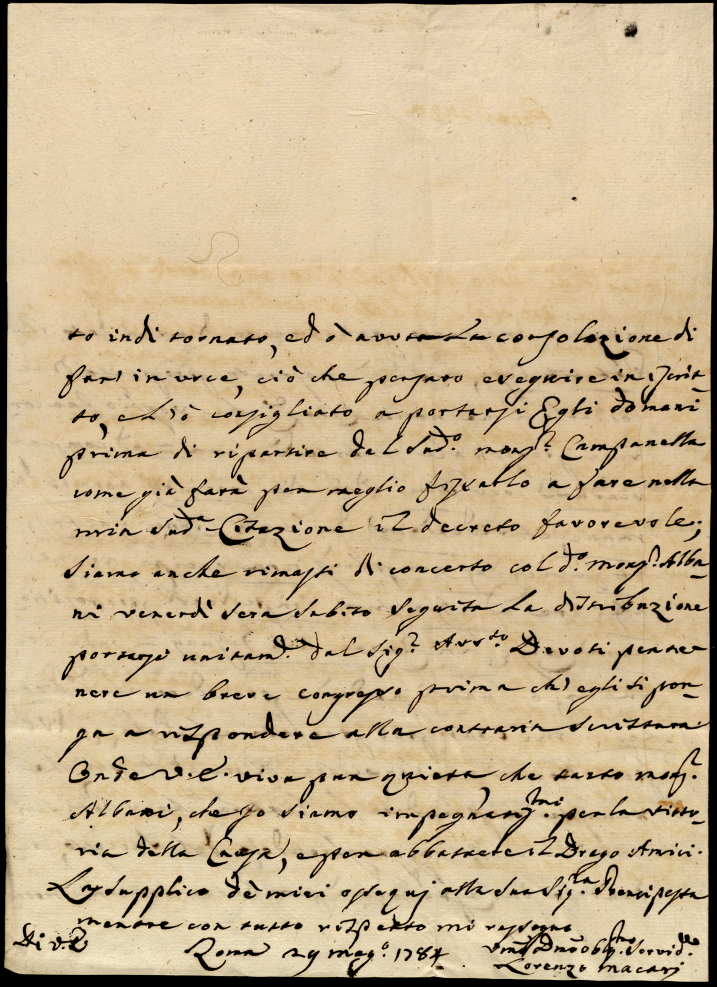 to indi tornato, ed ò avuta la consolazione di
farà in voce, ciò che pensavo eseguire in iscrit-
to, e l'ò consigliato a portarsi Egli domani
prima di ripartire dal Sud.º monsr. Campanella
come già farà per meglio fissarlo a fare nella
mia Sud.ª Citazione il decreto favorevole;
Siamo anche rimasti di concerto col dº. monsr. Alba-
ni venerdì sera subito seguita la distribuzione
portarsi unitamᵉ. dal Sigr. Avv.to Devoti per te-
nere un breve congresso prima ch'egli si pon-
ga a rispondere alla contraria scrittura.
Onde V.E. viva pur quieta, che tanto monsr.
Albani, che Io siamo impegnatissmi. per la vitto-
ria della Causa, e per abbattere il Drago Amici.
La supplico de miei ossequj alla Sua Sig.ra Principessa
mentre con tutto rispetto mi rassegno
Di V.E. Roma 29 mag.º 1784 Umo Dmo obbligmo. Servid.re
Lorenzo Macarj